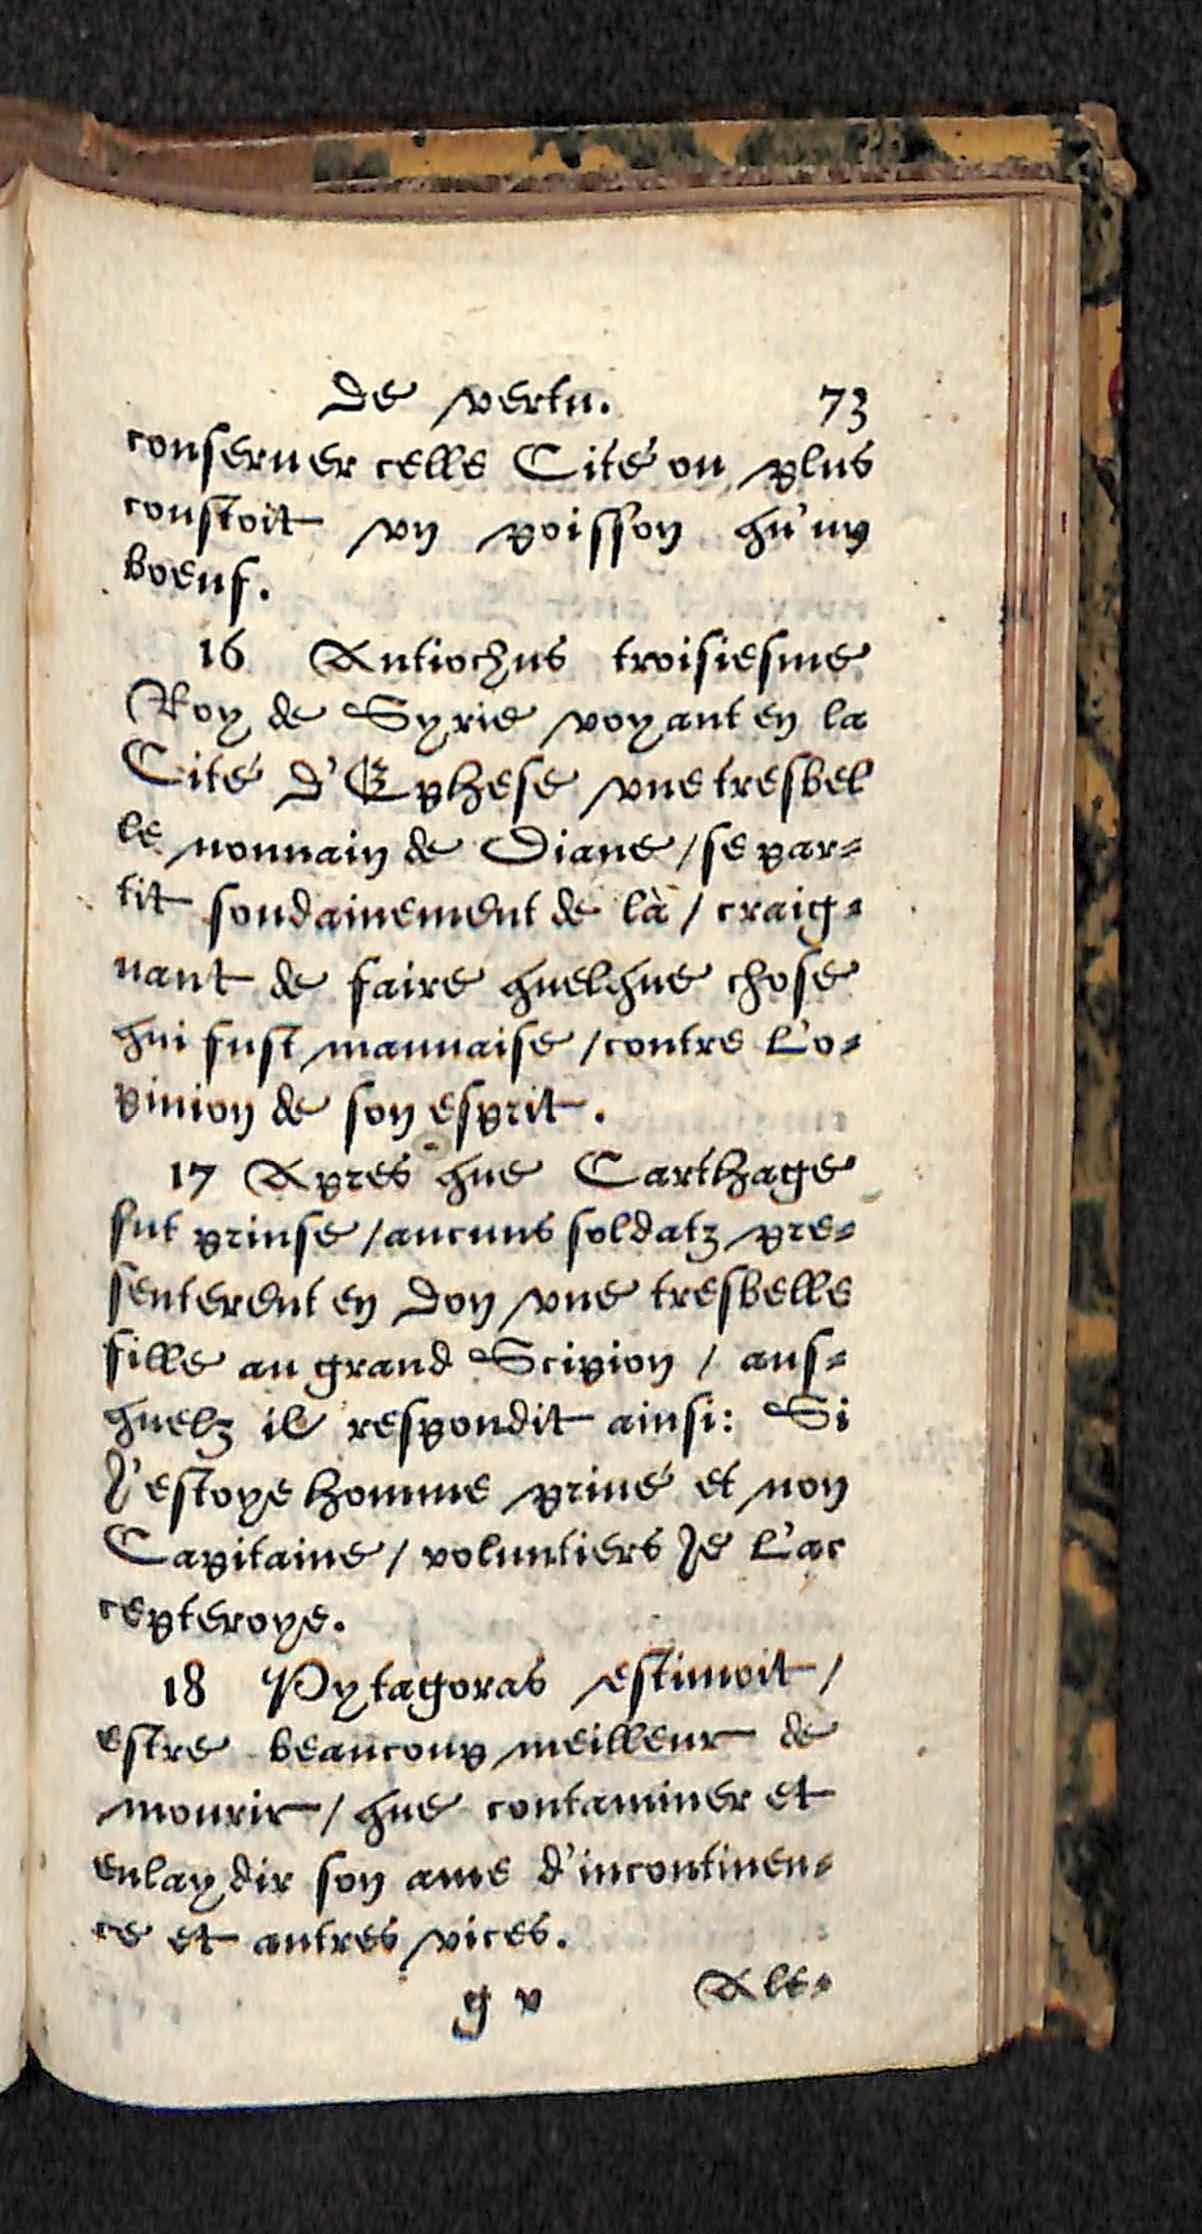 de vertu. 73
conseruer celle Cité ou plus
coustoit vn poisson qu'un
boeuf.
16 Antiochus troisiesme
Roy de Syrie voyant en la
Cité d'Ephese vne tresbel
le nonnain de Diane / se par-
tit soudainement de là / craig-
nant de faire quelque chose
qui fust mauuaise / contre l'o-
pinion de son esprit.
17 Apres que Carthage
fut prinse / aucuns soldatz pre-
senterent en don vne tresbelle
fille au grand Scipion / aus-
quelz il respondit ainsi: Si
J'estoye homme priué et non
Capitaine / voluntiers Je l'ac
cepteroye.
18 Pytagoras estimoit /
estre beaucoup meilleur de
mourir / que contaminer et
enlaydir son ame d'incontinen-
ce et autres vices.
g v Ale-